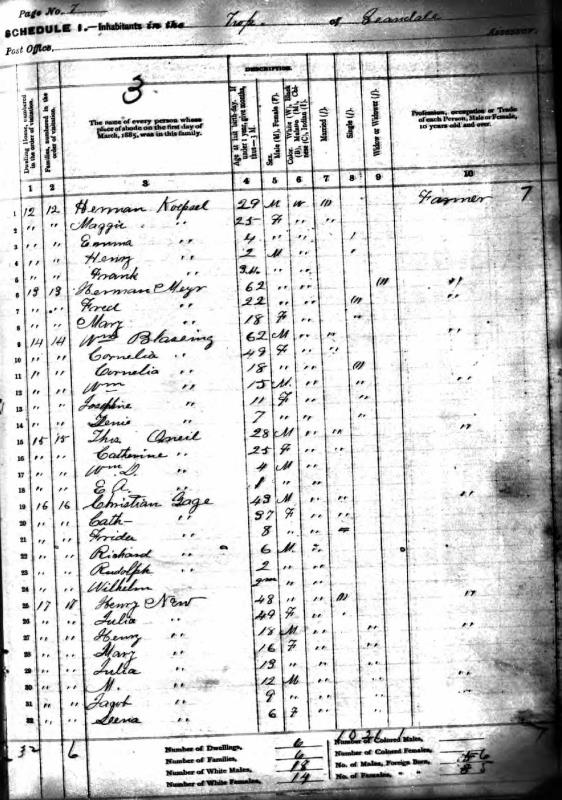 Page No. 7
SCHEDULE 1.—Inhabitants in the Trop. of Leandale
Post Office, Assessor.
3
DESCRIPTION.
Dwelling House, numbered in the order of visitation.
Families, numbered in the order of visitation.
The name of every person whose place of abode on the first day of March, 1885, was in this family.
Age at last birth-day. If under 1 year, give months, thus—3 M.
Sex. Male (M), Female (F).
Color. White (W), Black (B), Mulatto (M), Chinese (C), Indian (I).
Married (/).
Single (/).
Widow or Widower (/).
Profession, occupation or Trade of each Person, Male or Female, 10 years old and over.
1 2 3 4 5 6 7 8 9 10
1 12 12 Herman Koepsel 29 M W /// Farmer 7
2 " " Maggie " 25 F " "
3 " " Emma " 4 " " /
4 " " Henry " 2 M " "
5 " " Frank " " "
6 13 13 Herman Meyr 62 " " /// "
7 " " Fred " 22 " " /// "
8 " " Mary " 18 F " "
9 14 14 Wm Blaseing 62 M " " "
10 " " Cornelia " 49 F " "
11 " " Cornelia " 18 " " ///
12 " " Wm " 15 M " " "
13 " " Josephine " 11 F " "
14 " " " 7 " " "
15 15 15 Thos Oneil 28 M " " "
16 " " Catherine " 25 F " "
17 " " Wm D. " 4 M "
18 " " E A. " 1 " "
19 16 16 Christian Gage 43 M " " "
20 " " Cath- " 37 F " "
21 " " Frida " 8 " "
22 " " Richard " 6 M "
23 " " Rudolph " 2 " "
24 " " Wilhelm " "
25 17 Henry New 48 " " /// "
26 " " Julia " 49 F " "
27 " " Henry " 18 M " " "
28 " " Mary " 16 F " "
29 " " Julia " 13 " " "
30 " " M. " 12 M " " "
31 " " Jacob " 9 " " "
32 " " Leena " 6 F " "
32 6
Number of Dwellings, 6
Number of Families, 6
Number of White Males, 18
Number of White Females, 14
Number of Colored Males,
Number of Colored Females,
No. of Males, Foreign Born, 6
No. of Females, " " 5